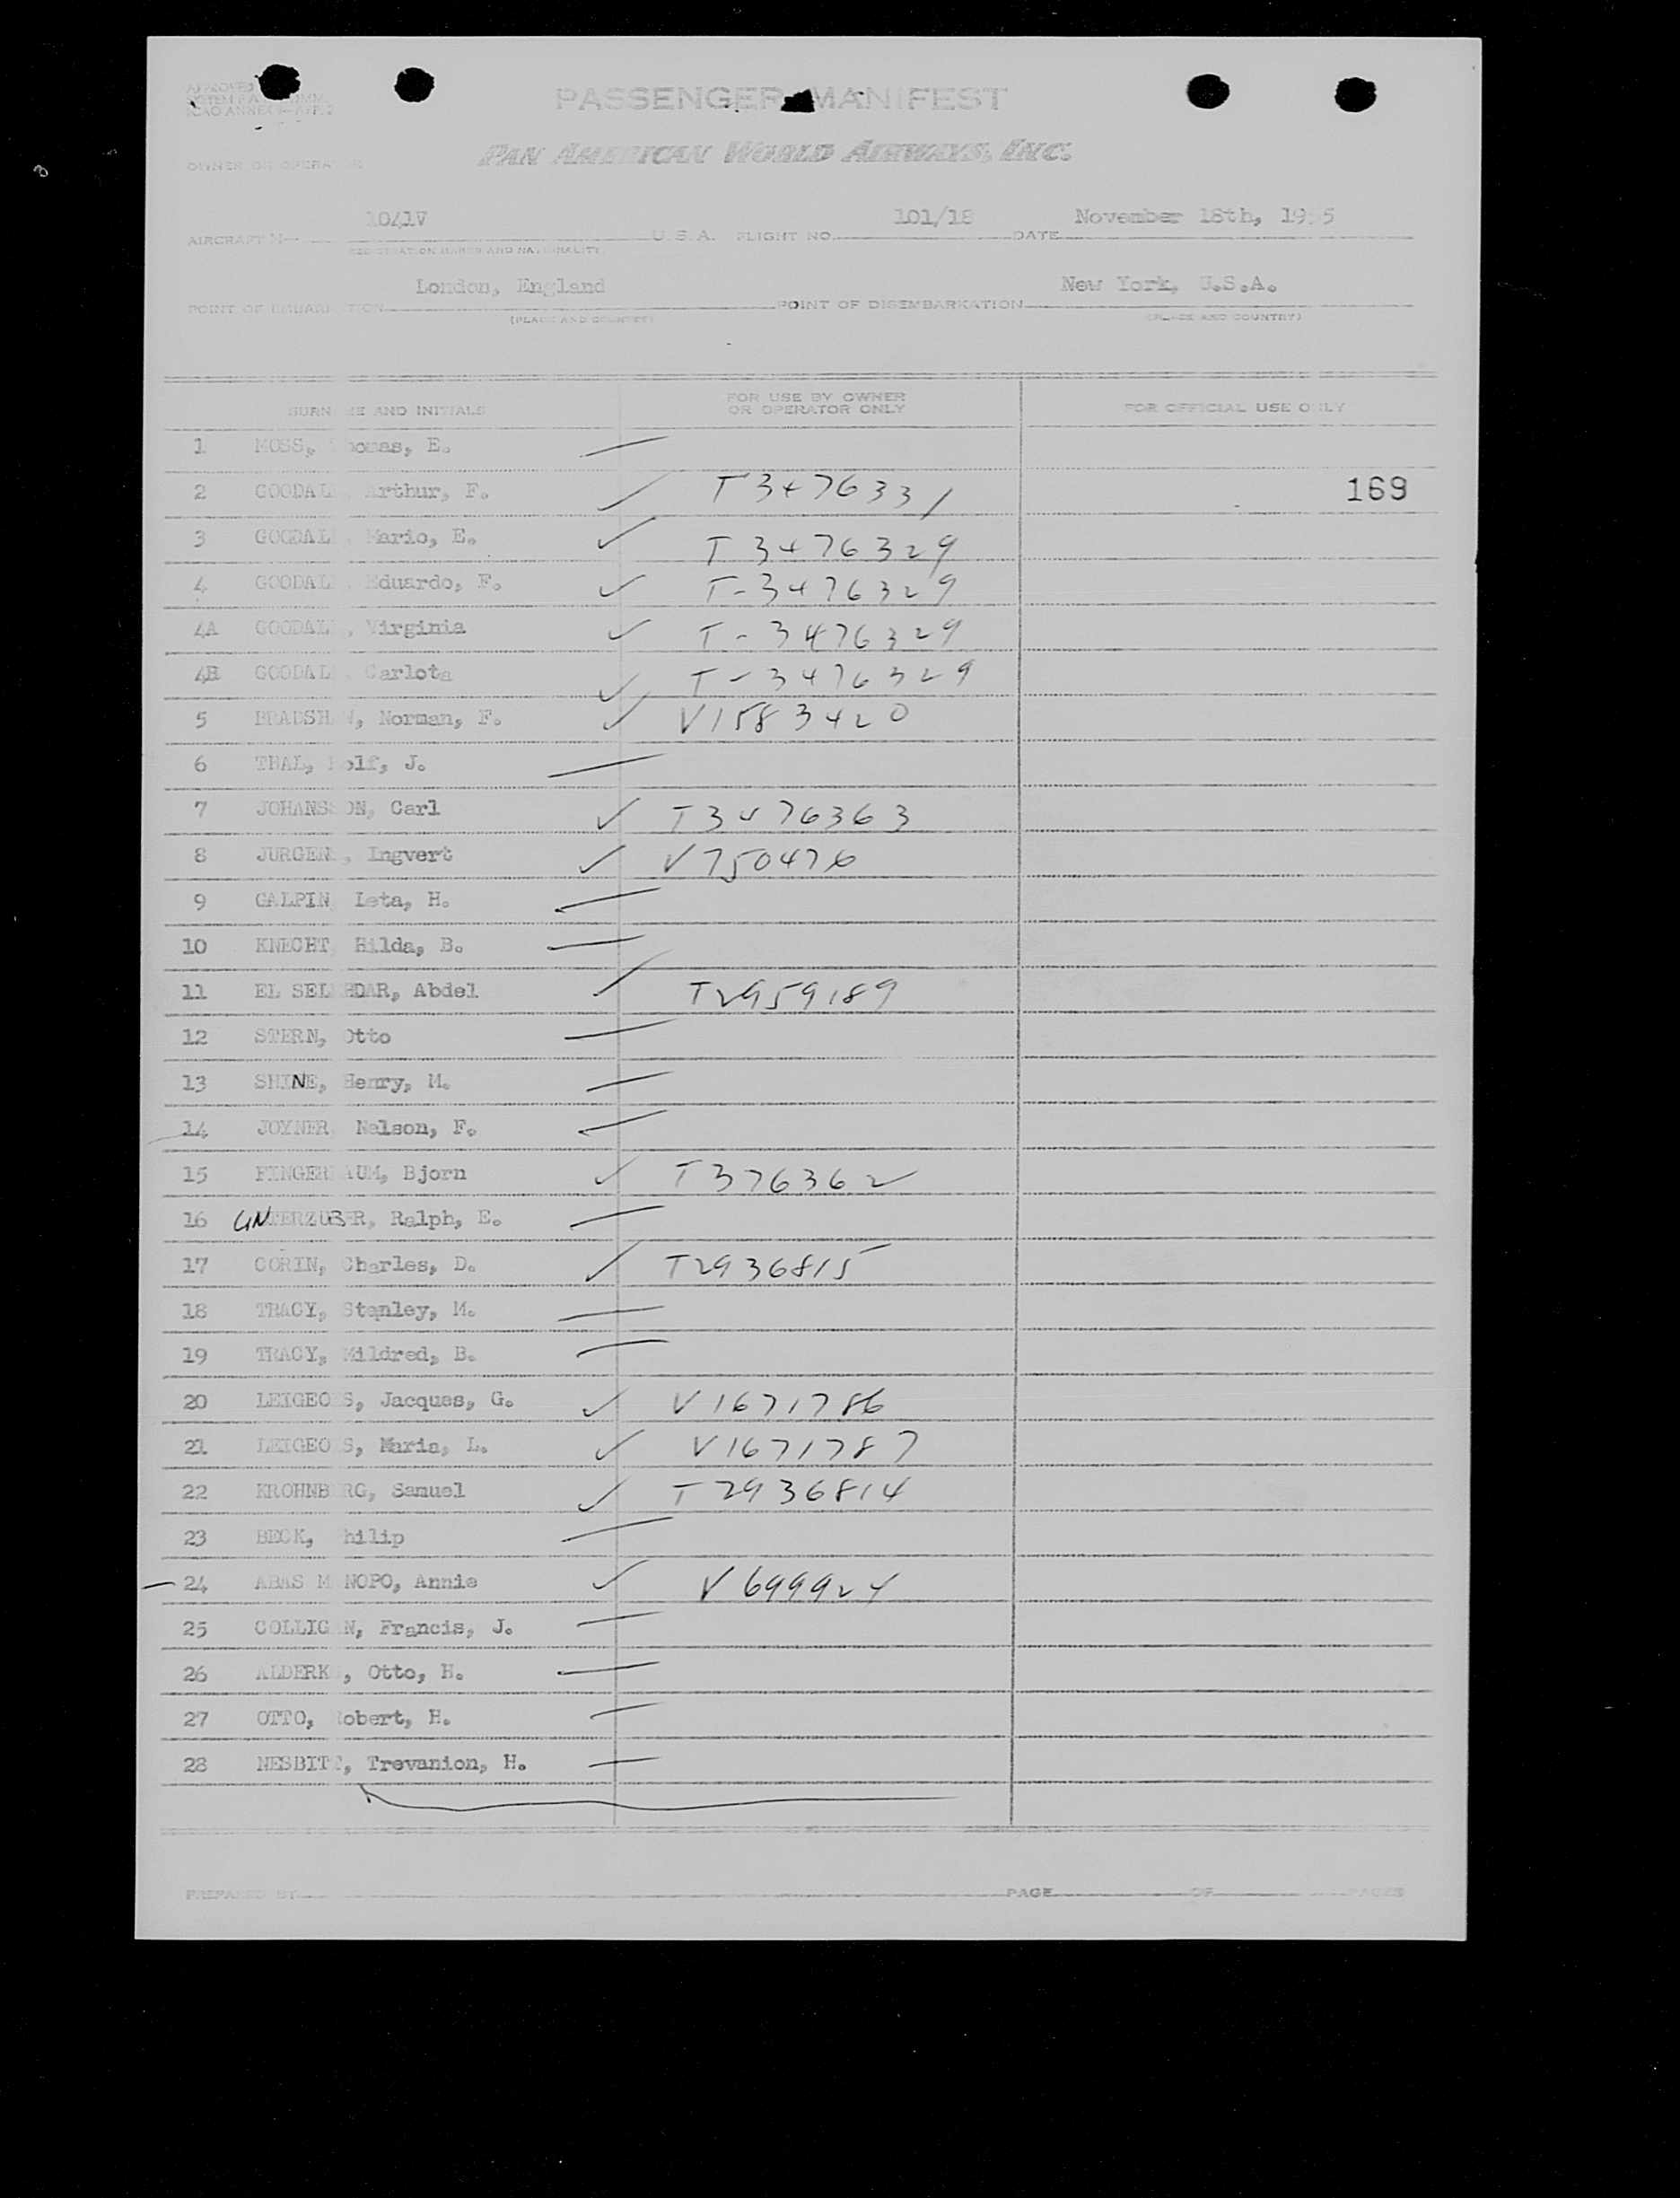 PASSENGER MANIFEST
OWNER OR OPERATOR
PAN AMERICAN WORLD AIRWAYS, INC.
AIRCRAFT N— 1041V U.S.A. FLIGHT NO. 101/18 DATE November 18th, 19 5
REGISTRATION MARKS AND NATIONALITY
POINT OF EMBARKATION London, England POINT OF DISEMBARKATION New York, U.S.A.
(PLACE AND COUNTRY) (PLACE AND COUNTRY)
SURNAME AND INITIALS FOR USE BY OWNER OR OPERATOR ONLY FOR OFFICIAL USE ONLY
1 MOSS, Thomas, E.
2 GOODALL, Arthur, F. T3476331 169
3 GOODALL, Mario, E. T3476329
4 GOODALL, Eduardo, F. T-3476329
4A GOODALL, Virginia T-3476329
4B GOODALL, Carlota T-3476329
5 BRADSHAW, Norman, F. V1583420
6 THAL, Rolf, J.
7 JOHANSSON, Carl T3476363
8 JURGENS, Ingvert V750476
9 GALPIN, Leta, H.
10 KNECHT, Hilda, B.
11 EL SEL HDAR, Abdel T2959189
12 STERN, Otto
13 SHINE, Henry, M.
14 JOYNER, Nelson, F.
15 FINGER AUM, Bjorn T376362
16 UNTERZUBER, Ralph, E.
17 CORIN, Charles, D. T2936815
18 TRACY, Stanley, M.
19 TRACY, Mildred, B.
20 LEIGEO S, Jacques, G. V1671786
21 LEIGEO S, Maria, L. V1671787
22 KROHNBERG, Samuel T2936814
23 BECK, Philip
24 ABAS M NOPO, Annie V699924
25 COLLIGAN, Francis, J.
26 ALDERKS, Otto, H.
27 OTTO, Robert, H.
28 NESBITT, Trevanion, H.
PREPARED BY PAGE OF PAGES